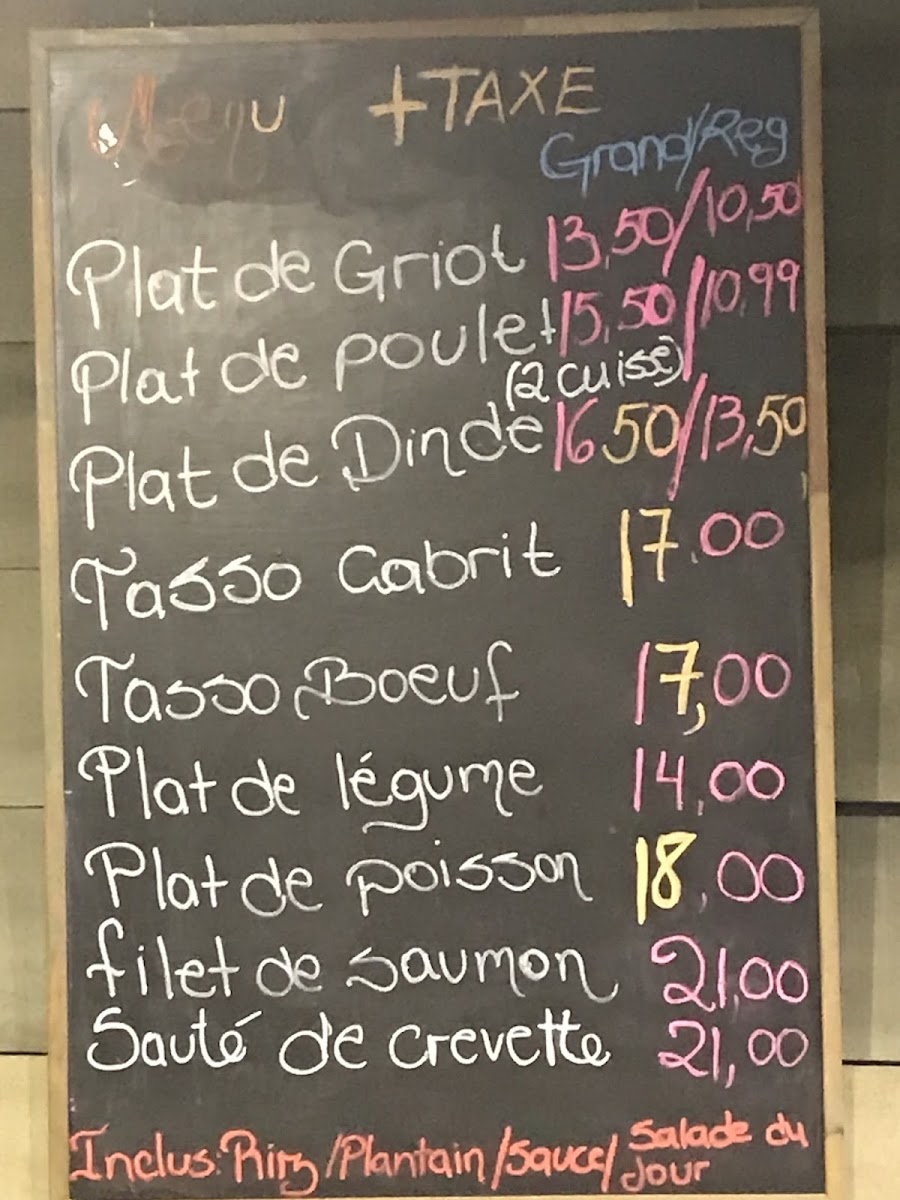 Menu +TAXE
Grand/Reg
Plat de Griot 13,50/10,50
Plat de poulet 15,50/10,99
(2 cuisse)
Plat de Dinde 16 50/13,50
Tasso Cabrit 17.00
Tasso Boeuf 17,00
Plat de légume 14,00
Plat de poisson 18,00
filet de saumon 21,00
Sauté de crevette 21,00
Inclus: Rirz/Plantain/Sauce/ Salade du
Jour